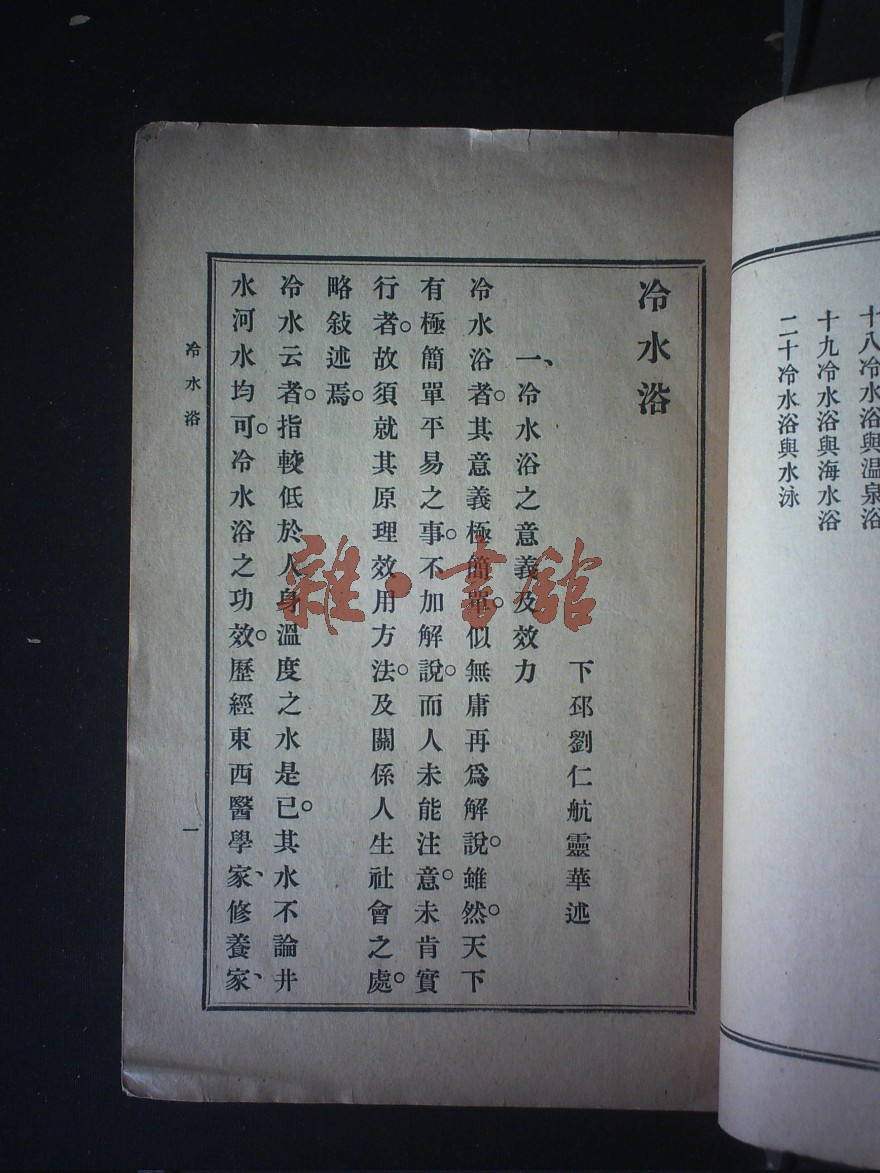 十八冷水浴與温泉浴
十九冷水浴與海水浴
二十冷水浴與水泳
冷水浴
下邳劉仁航靈華述
一、冷水浴之意義及效力
冷水浴者。其意義極簡單。似無庸再爲解說。雖然。天下
有極簡單平易之事。不加解說。而人未能注意。未肯實
行者。故須就其原理效用方法。及關係人生社會之處。
略敍述焉。
冷水云者。指較低於人身溫度之水是已。其水不論井
水河水均可。冷水浴之功效。歷經東西醫學家、修養家、
冷水浴
一
雜·書館